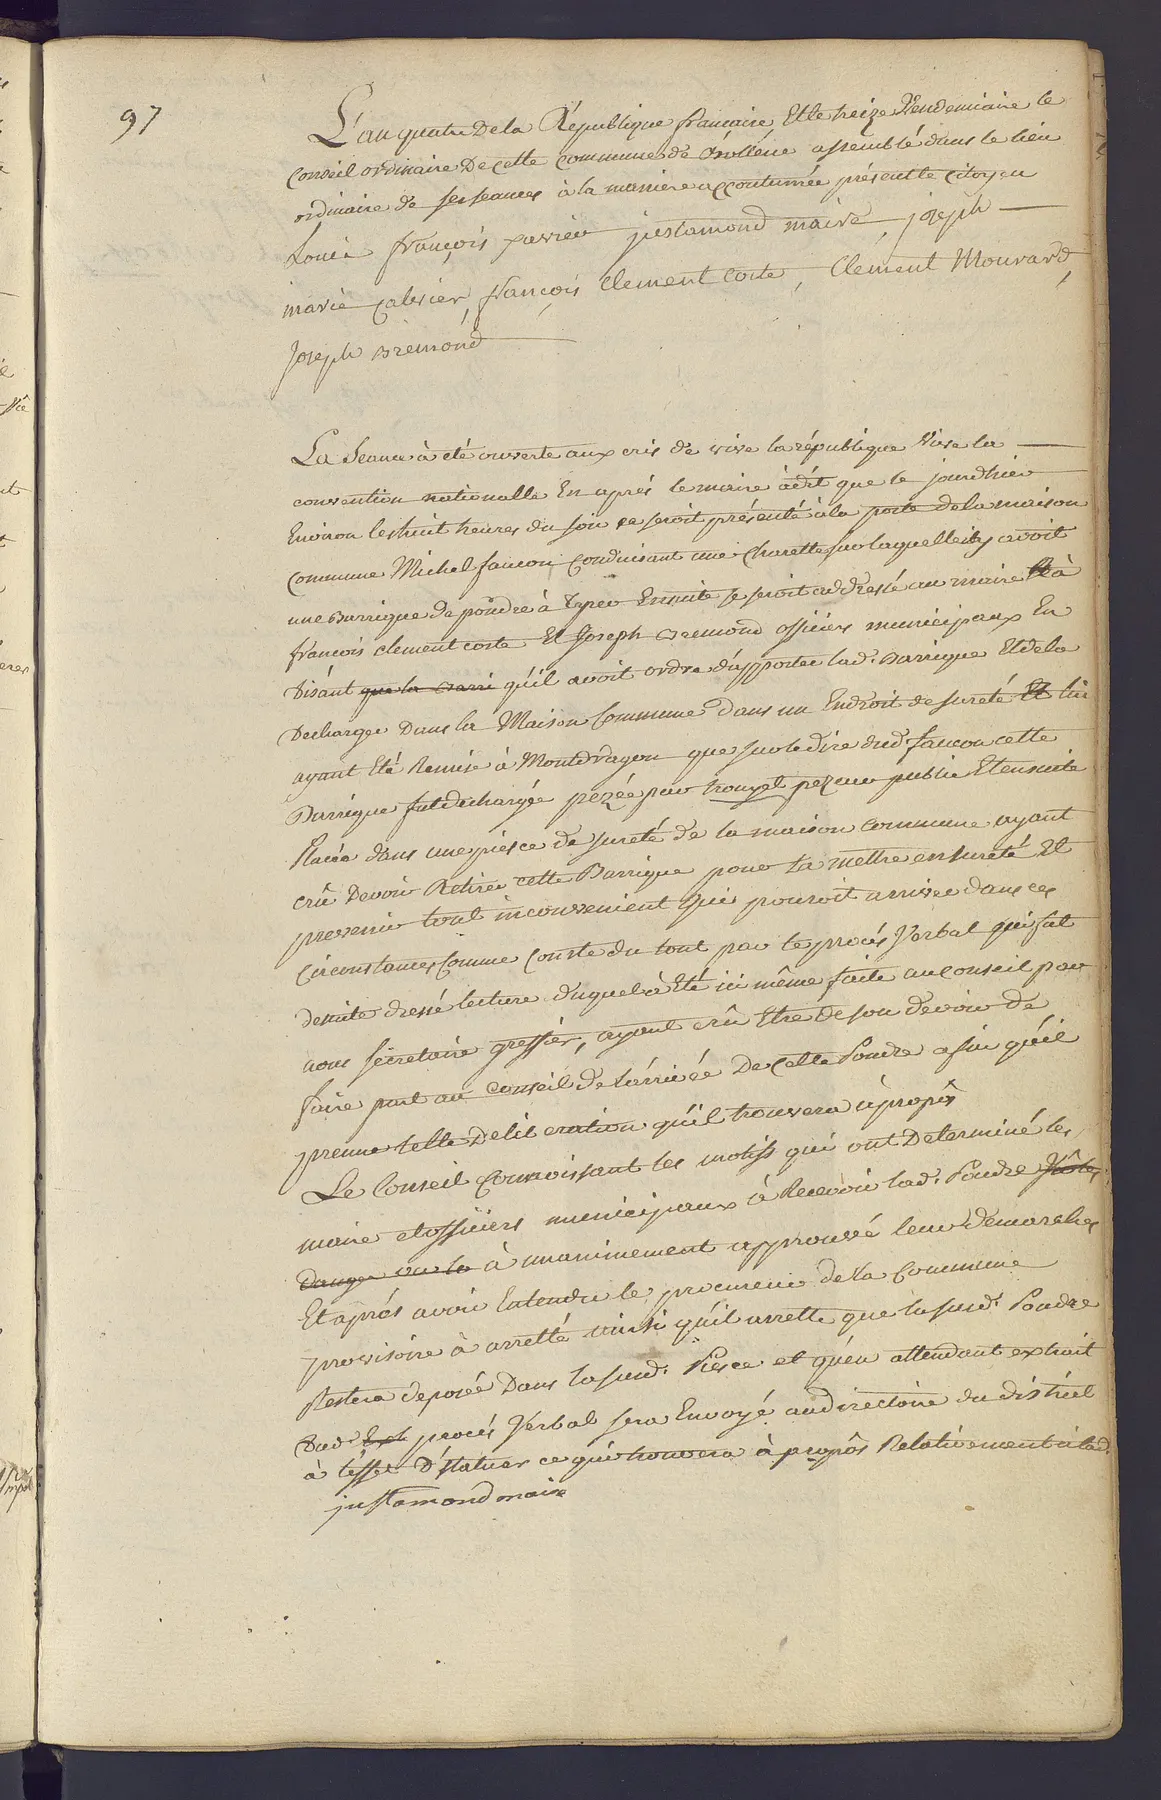 97
L'an quatre de la République francaise, Et le treize Vendemiaire le
Conseil ordinaire De cette commune de Bollène assemblé dans le lieu
ordinaire de ses seances à la maniere accoutumée présent le citoyen
Louis françois xavier justamond maire, joseph
marie calvier, françois Clement Coste, Clément Mourard,
Joseph Bremond
La Seance à été ouverte aux cris de vive la république Vive la
convention nationalle En aprés le maire à dit que le jourdhier
Environ les huit heures du soir se seroit présenté à la porte de la maison
commune Michel faucon conduisant une charette sur laquelle il y avoit
une Barrique de poudre à tirer Ensuite se seroit addressé au maire Et à
francois clement coste Et Joseph Bremond officiers municipaux En
Disant que la Barri qu'il avoit ordre d'apporter lad. Barrique Et de la
Decharger Dans la Maison Commune dans un Endroit de sureté Et lui
ayant Eté Remise à Montdragon que sur le dire dud. faucon cette
Barrique fut dechargée pezée par trouyet pezeur public Et ensuite
Placée dans une piesce de sureté de la maison commune ayant
crû Devoir Retirer cette Barrique pour la mettre en sureté Et
prevenir tout inconvenient qui pouroit arriver dans ces
circonstances Comme conste du tout par le procés Verbal qui fut
desuite dressé lecture duquel à Eté ici même faite au Conseil par
nous secretaire greffier, ayant crû Etre De son devoir de
faire part au conseil de l'arrivée De cette Poudre afin qu'il
prenne telle Deliberation qu'il trouvera à propôs
Le Conseil Connoissant les motifs qui ont Determiné les
maire et officiers municipaux à Recevoir lad. Poudre
Danger ou la à unanimement approuvé leur demarche
Et aprés avoir Entendu le procureur de la Commune
provisoire à arretté ainsi qu'il arrette que la susd. Poudre
Restera deposée Dans la susd. Piesce et qu'en attendant extrait
Dud. Ext procés Verbal sera Envoyé au directoire du district
à l'effet D'statuer ce qu'il trouvera à propôs Relativement à lad.
justamond maire